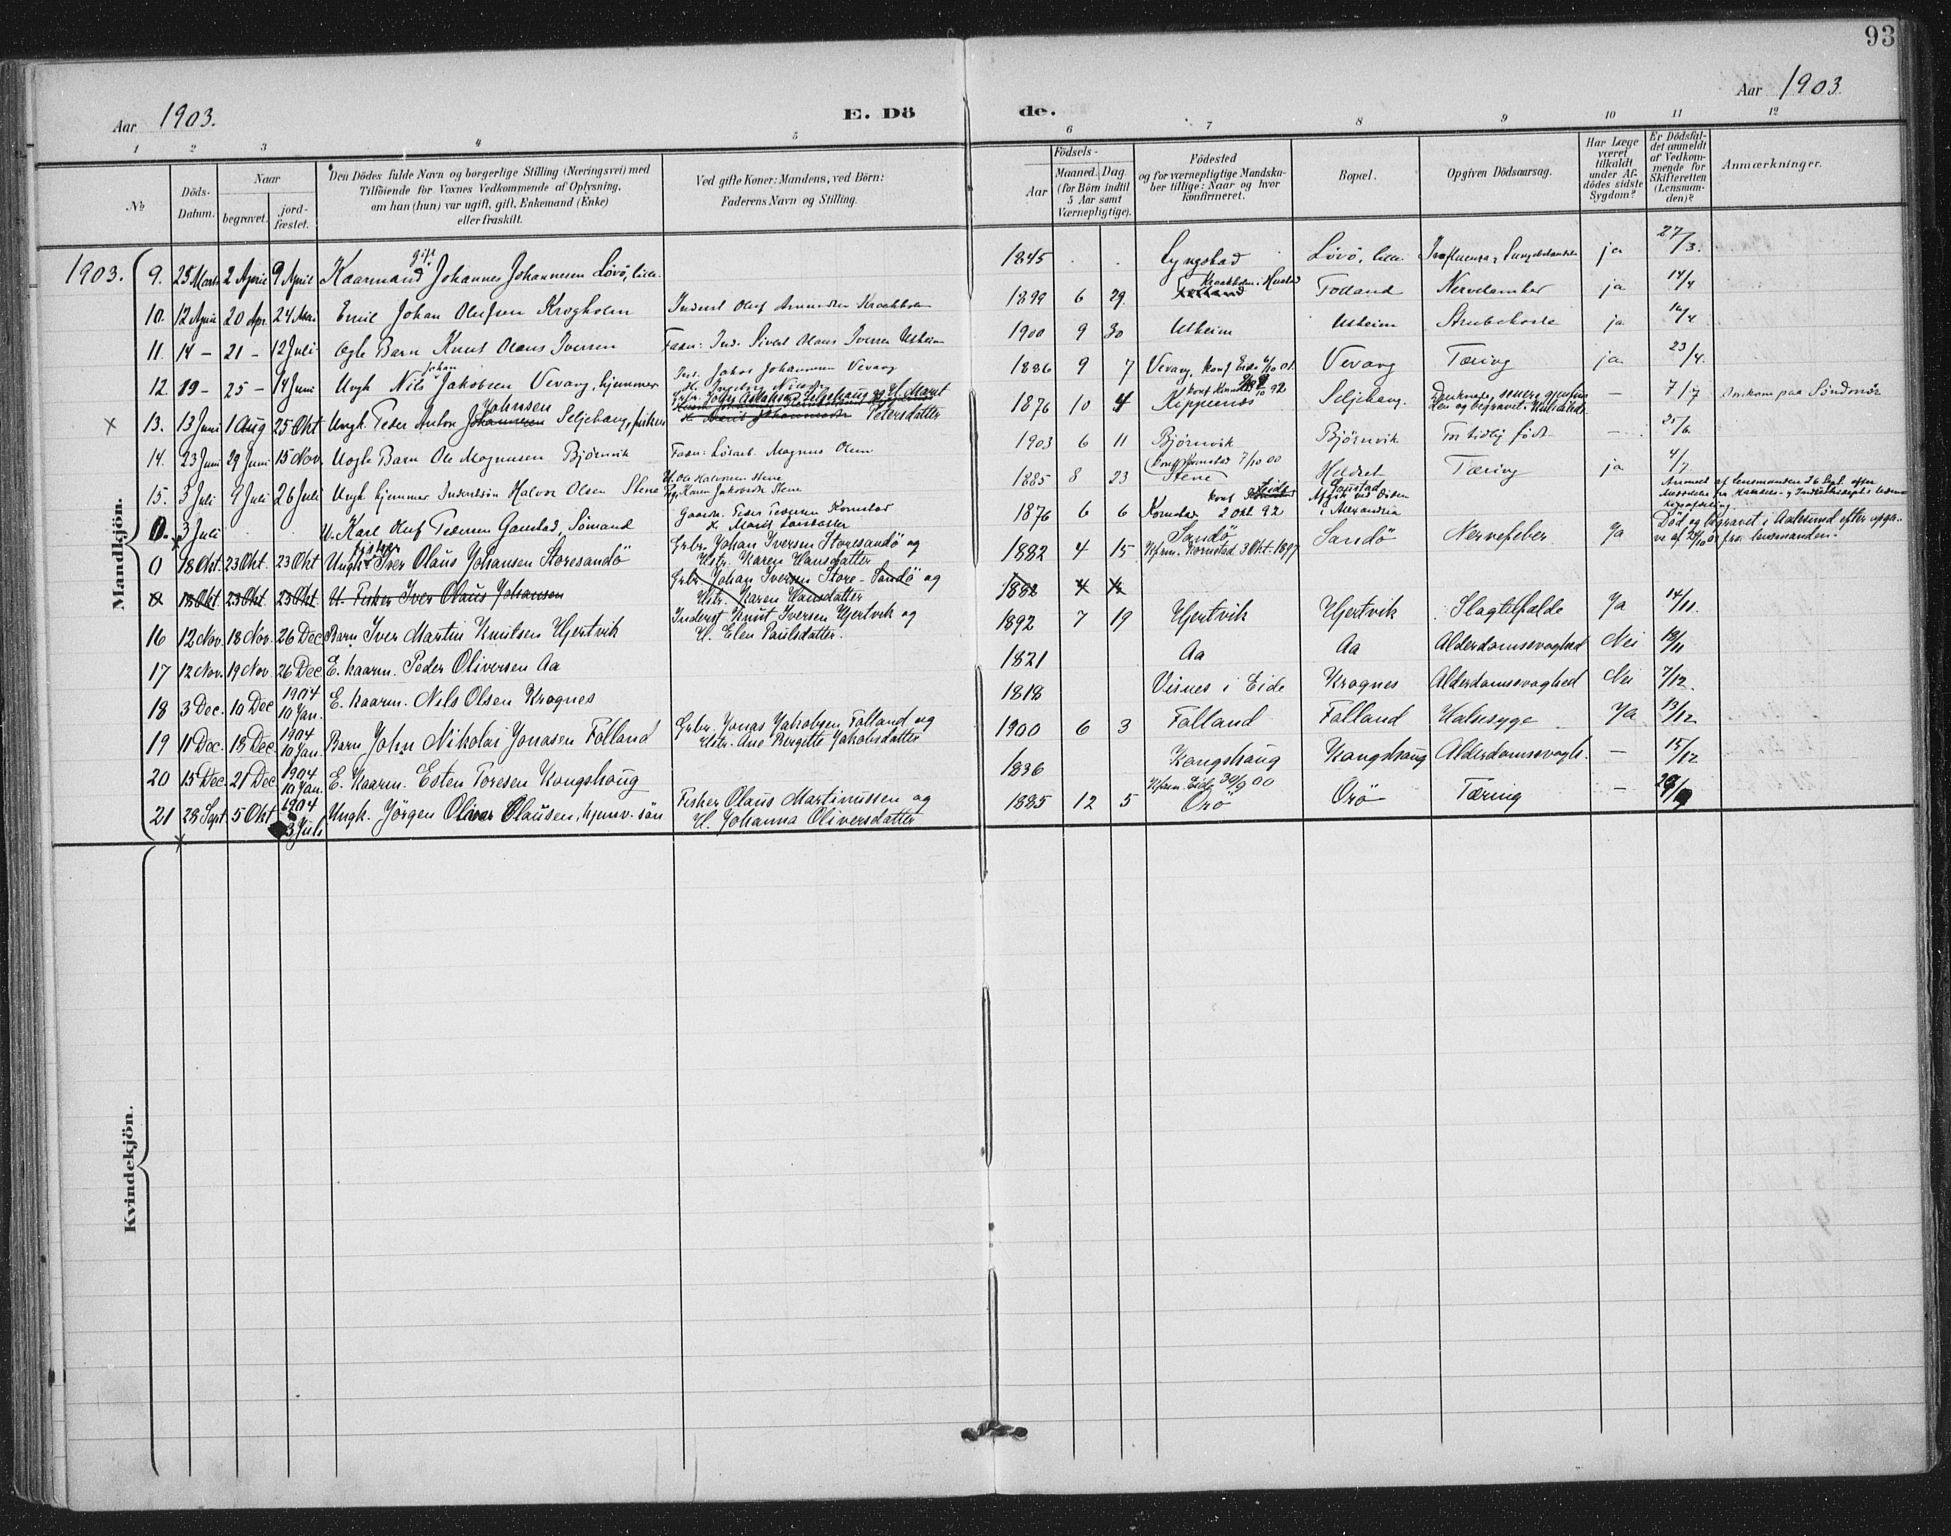 93
Aar 1903.
E. Dö de.
Aar 1903.
1 2 3 4 5 6 7 8 9 10 11 12
No
Döds-Datum.
Naar
begravet.
jord-fæstet.
Den Dödes fulde Navn og borgerlige Stilling (Næringsvei) med
Tilföiende for Voxnes Vedkommende af Oplysning,
om han (hun) var ugift, gift, Enkemand (Enke)
eller fraskilt.
Ved gifte Koner: Mandens, ved Börn:
Faderens Navn og Stilling.
Födsels-
Aar
Maaned. Dag
(for Börn indtil
5 Aar samt
Værnepligtige).
Födested
og for værnepligtige Mandska-
ber tillige: Naar og hvor
konfirmeret.
Bopæl.
Opgiven Dödsaarsag.
Har Læge
været
tilkaldt
under Af-
dödes sidste
Sygdom?
Er Dödsfal-
det anmeldt
af Vedkom-
mende for
Skifteretten
(Lensman-
den)?
Anmærkninger.
Mandkjön.
1903. 9. 25 Marts 2 April 9 April Kaarmand gift Johannes Johannesen Lövö, lille. 1845 Lyngstad Lövö, lille. Influenza, Lungebetændelse ja 27/3.
10. 12 April 20 Apr. 24 Mai Emil Johan Olufsen Krogholm Inderst Oluf Amundsen Kraakholm 1899 6 29. Kraakholm, Hustad Folland Nervefeber ja 14/4
11. 14 - 21 - 12 Juli Ægte Barn Knut Olaus Iversen Faen: Ind. Sivert Olaus Iversen Usheim 1900 9 30 Usheim Usheim Strubehoste ja 16/4
12. 19 - 25 - 14 Juni Ungk Nils Johan Jakobsen Vevang, hjemmev. Ind. Jakob Johannesen Vevang 1886 9 7 Vevang, konf Eide 6/10 01. Vevang Tæring ja 23/4.
13. 13 Juni 1 Aug 25 Okt Ungk. Peder Anton Johansen Johnsen Seljehaug, fisker Petersdatter 1876 10 4 Kippernes Seljehaug. Druknet, senere gjenfun- - 7/7
14. 23 Juni 29 Juni 15 Nov. Uægte Barn Ole Magnusen Bjørnvik Faen: Løsarb. Magnus Olsen 1903 6 11 Bjørnvik Bjørnvik For tidlig født - 25/6
15. 3 Juli 9 Juli 26 Juli Ungk hjemmev Inderstsön Halvor Olsen Stene Ole Halvorsen Stene 1885 8 23 Stene konf Kornstad 7/10 00 Holdset Tæring ja 4/7
0. 3 Juli U. Karl Oluf Pedersen Gaustad, Sømand Gaardm. Peder Pedersen Kornstad 1876 6 6 Kornstad 2 Okt. 92 Gaustad i Alexandria
0 18 Okt. 23 Okt. 23 Okt Ungk. fisker Iver Olaus Johansen Storesandö Grbr. Johan Iversen Storesandö og Hstr. Karen Hansdatter 1882 4 15 Sandö Kfrm. Kornstad 3 Okt. 1897 Sandö Nervefeber Ja Död og begravet i Aalesund efter opga-ve af 24/10 03 fra lensmanden.
0 18 Okt 23 Okt. 23 Okt. U. Fisker Iver Olaus Johansen Grbr. Johan Iversen Store-Sandö og Hstr. Karen Hansdatter 1882 4
16 12 Nov. 18 Nov. 26 Dec Barn Iver Martin Knutsen Hjertvik Inderst Knut Iversen Hjertvik og H. Elen Paulsdatter. 1892 7 19 Hjertvik Hjertvik Slagtilfælde Ja 14/11.
17 12 Nov. 19 Nov. 26 Dec E. kaarm. Peder Oliversen Aa 1821 Aa Aa Alderdomssvaghed Nei 18/11
18 3 Dec. 10 Dec 1904 10 Jan. E. kaarm. Nils Olsen Krognes 1818 Visnes i Eide Krognes Alderdomssvaghed Nei 7/12.
19 11 Dec. 18 Dec. 1904 10 Jan. Barn John Nikolai Jonasen Folland Grbr. Jonas Jakobsen Folland og Hstr. Ane Bergitte Jakobsdatter 1900 6 3 Folland Folland Halssyge Ja 13/12
20 15 Dec. 21 Dec. 1904 10 Jan. E. Kaarm. Esten Toresen Kongshaug 1836 Kongshaug Kongshaug Alderdomssvagh. - 15/12
21 28 Sept 5 Okt 1904 3 Juli Ungk. Jörgen Oliver Olausen, hjemv. sön Fisker Olaus Martinussen og H. Johanna Oliversdatter 1885 12 5 Kfrm. Eide 30/9 00 Orö Orö Tæring - 29/9
Kvindekjön.